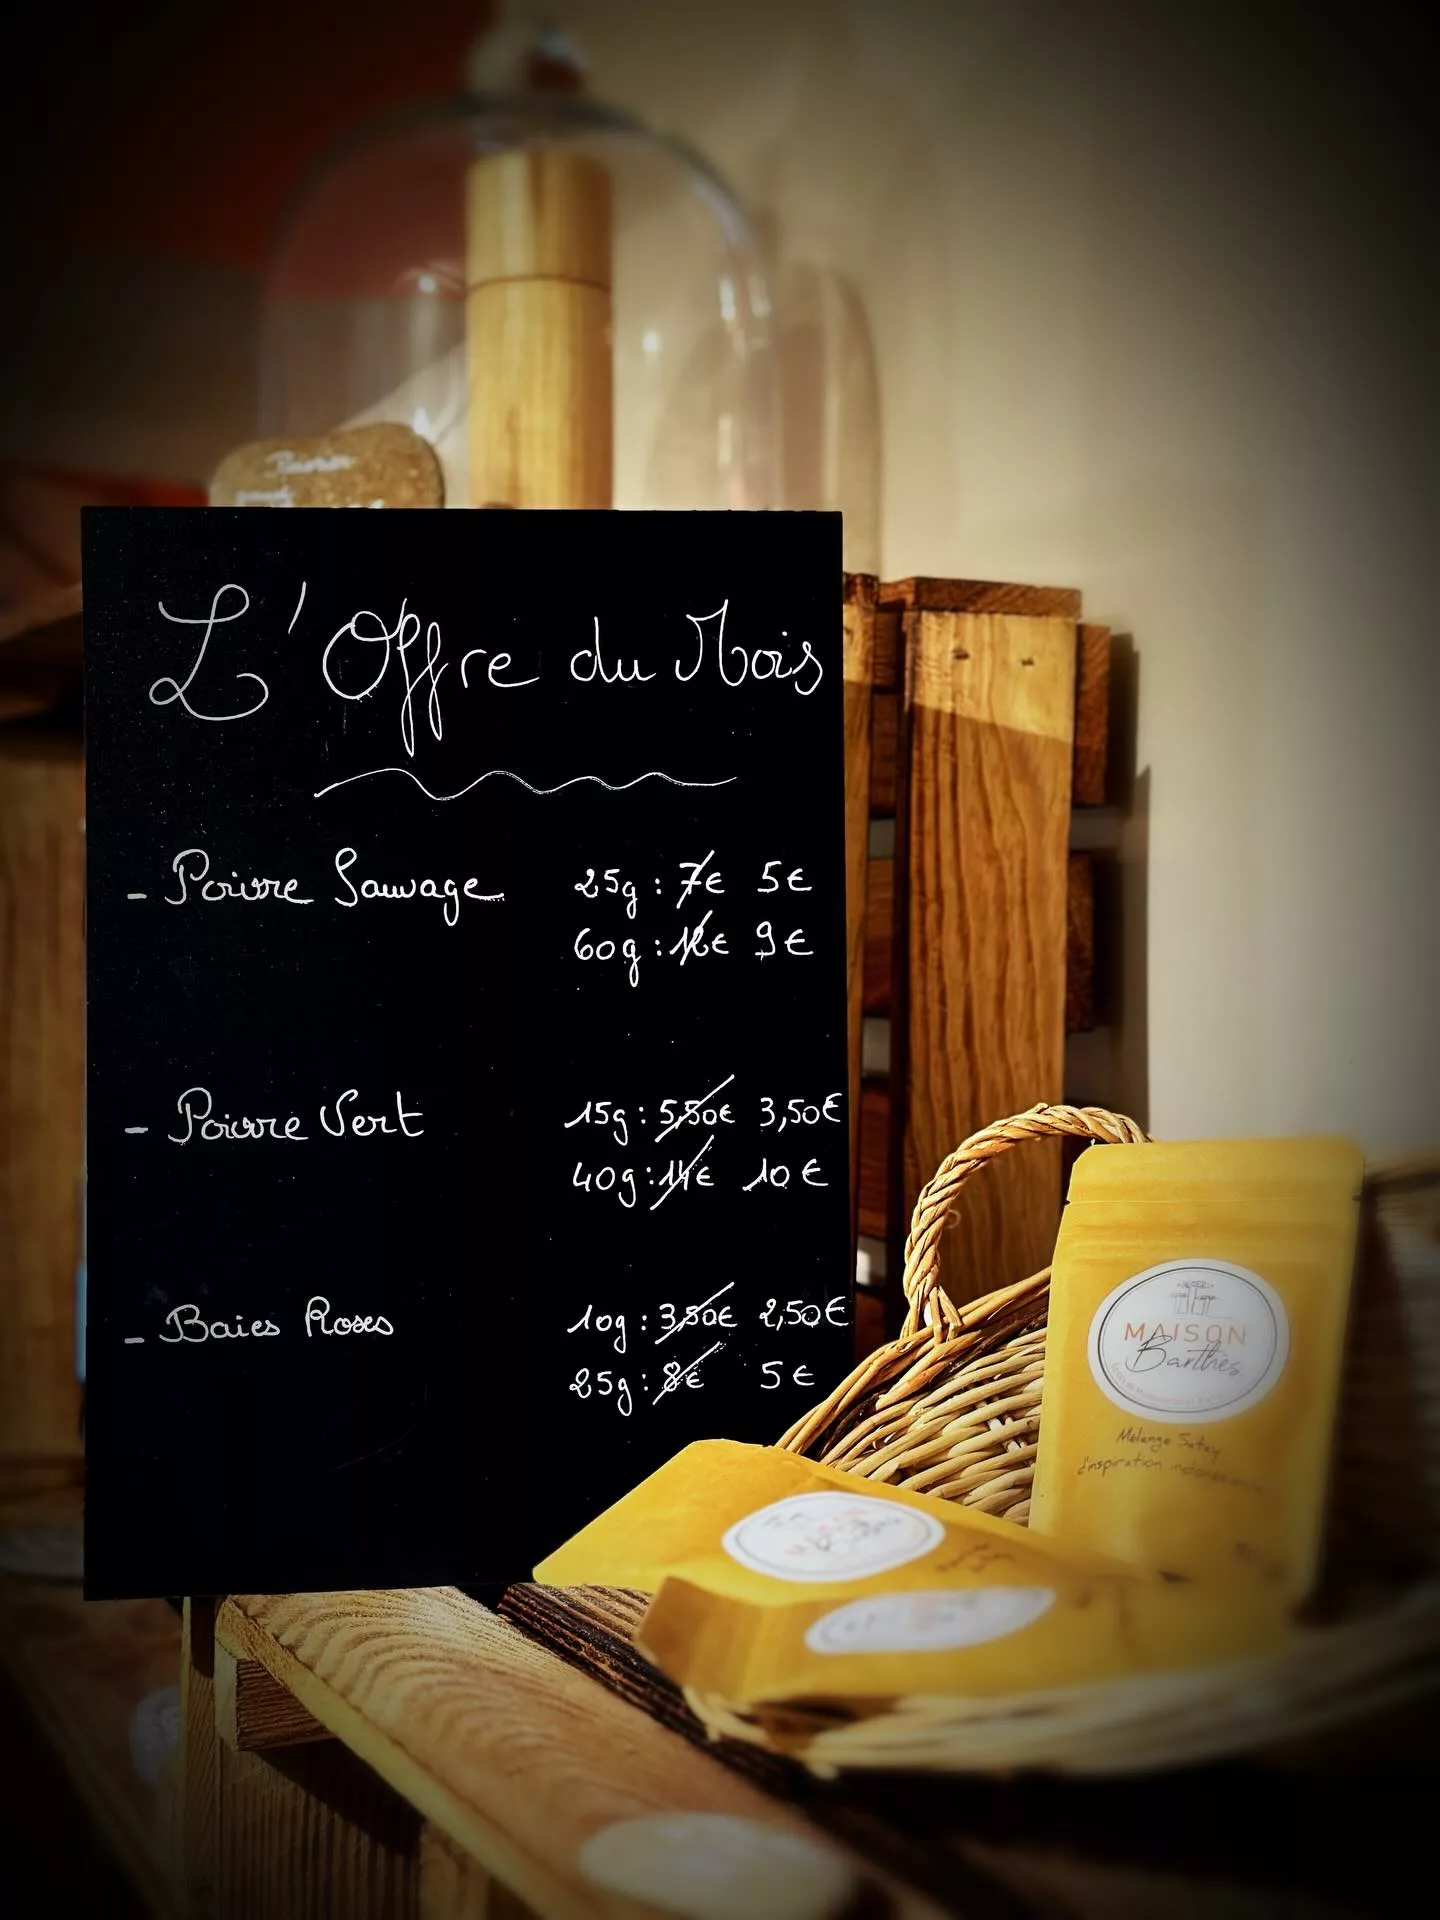 L'Offre du Mois
- Poivre Sauvage 25g : 7€ 5€
60g : 12€ 9€
- Poivre Vert 15g : 5,50€ 3,50€
40g : 14€ 10€
- Baies Roses 10g : 3,50€ 2,50€
25g : 8€ 5€
MAISON
Barthès
Mélange Satay
d'inspiration indonésienne
MAISON